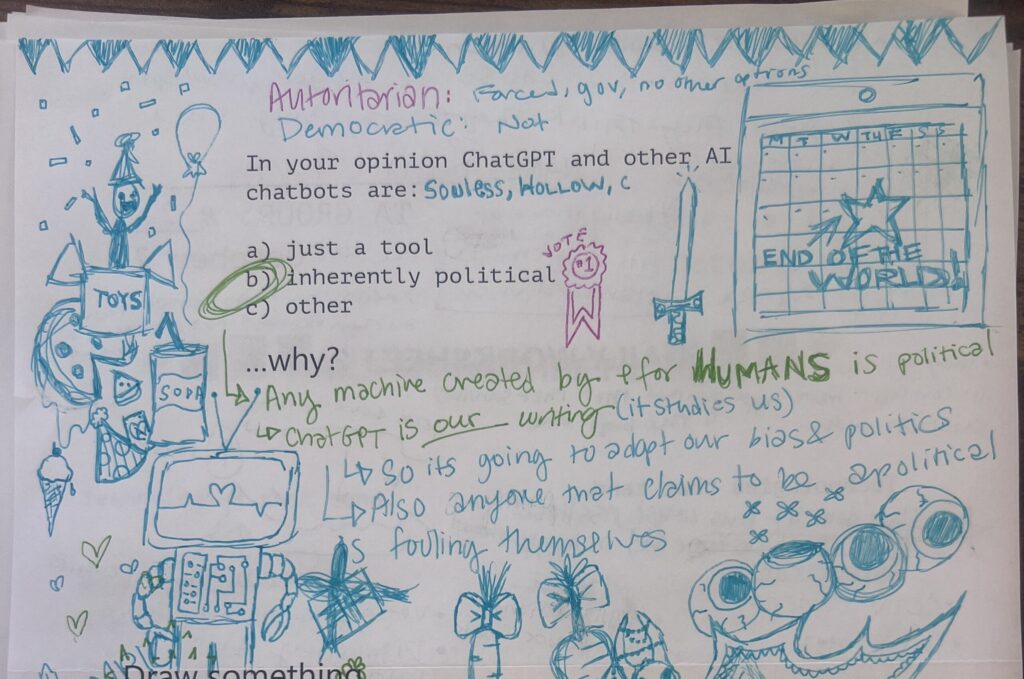 Autoritarian: Forced, gov, no other options
Democratic: Not
In your opinion ChatGPT and other AI
chatbots are: Souless, Hollow, C
a) just a tool
b) inherently political
c) other
VOTE
#1
M T W TH F S S
END OF THE
WORLD!
TOYS
SODA
...why?
Any machine created by & for HUMANS is political
ChatGPT is our writing (it studies us)
So its going to adopt our bias & politics
Also anyone that claims to be apolitical
is fouling themselves
Draw something